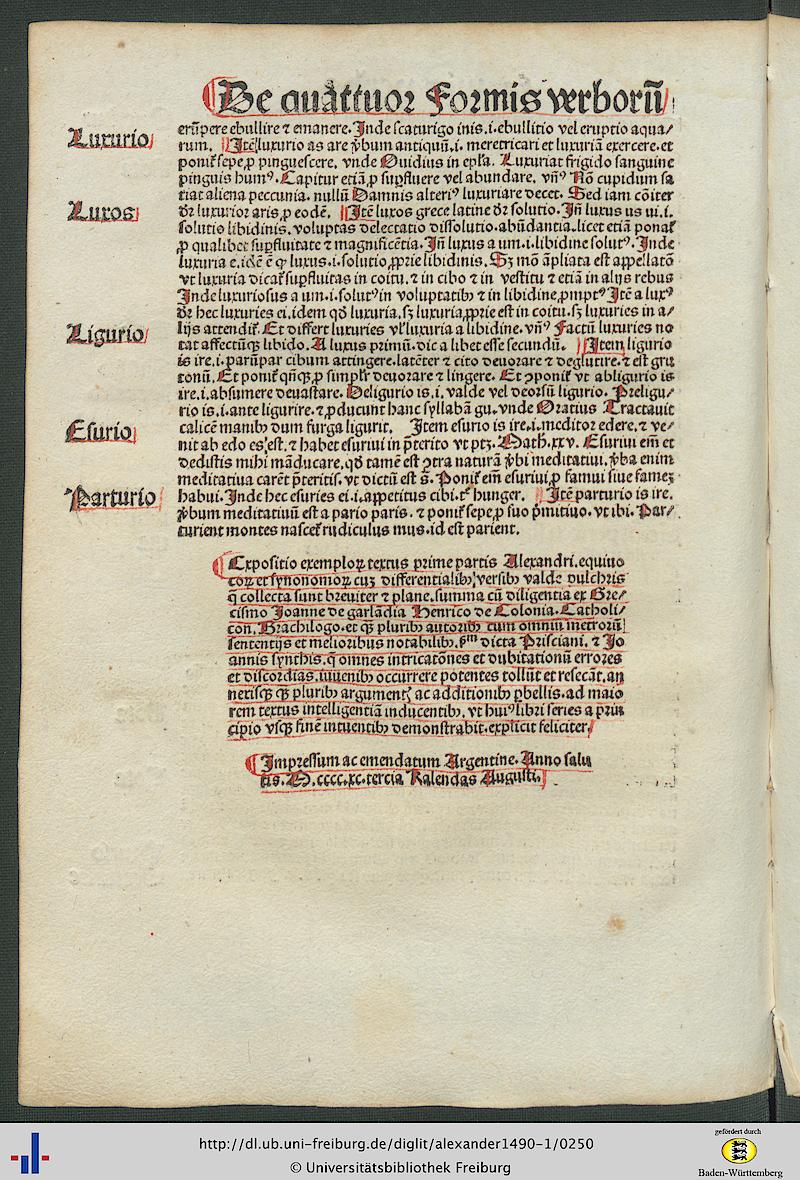 De quattuor Formis verborū
Luxurio
erūpere ebullire ⁊ emanere. Inde scaturigo inis .i. ebullitio vel eruptio aqua/
rum. Itē luxurio as are ꝟbum antiquū .i. meretricari et luxuriā exercere. et
poniť sepe ꝓ pinguescere. vnde Ouidius in epła. Luxuriat frigido sanguine
pinguis humꝰ. Capitur etiā ꝓ suꝑfluere vel abundare. vnꝰ Nō cupidum sa
tiat aliena peccunia. nullū Damnis alteriꝰ luxuriare decet. Sed iam cōiter
Luxos
dr̄ luxurior aris ꝓ eodē. Itē luxos grece latine dr̄ solutio. Jn̄ luxus us ui .i.
solutio libidinis. voluptas delectatio dissolutio. abūdantia. licet etiā ponať
ꝓ qualibet suꝑfluitate ⁊ magnificētia. Jn̄ luxus a um .i. libidine solutꝰ. Inde
luxuria e. idē ē ꝙ luxus .i. solutio ꝓprie libidinis. Sꝫ mō āpliata est appellatō
vt luxuria dicať suꝑfluitas in coitu. ⁊ in cibo ⁊ in vestitu ⁊ etiā in alijs rebus
Inde luxuriosus a um .i. solutꝰ in voluptatibꝫ ⁊ in libidine ꝓmptꝰ Itē a luxꝰ
dr̄ hec luxuries ei. idem qd̄ luxuria. sꝫ luxuria ꝓprie est in coitu. sꝫ luxuries in a/
Ligurio
lijs attendiť. Et differt luxuries vľ luxuria a libidine. vnꝰ Factū luxuries no
tat affectūqꝫ libido. A luxus primū. dic a libet esse secundū. Item ligurio
is ire .i. parūpar cibum attingere. latēter ⁊ cito deuorare ⁊ deglutire. ⁊ est gru
tonū. Et poniť qn̄qꝫ ꝓ simplr̄ deuorare ⁊ lingere. Et ꝯponiť vt abligurio is
ire .i. absumere deuastare. Deligurio is .i. valde vel deorsū ligurio. Preligu-
rio is .i. ante ligurire. ⁊ ꝓducunt hanc syllabā gu. vnde Oratius Tractauit
Esurio
calicē manibꝫ dum furga ligurit. Item esurio is ire .i. meditor edere. ⁊ ve-
nit ab edo es est. ⁊ habet esuriui in p̄terito vt ptꝫ. Math. xxv. Esuriui em̄ et
dedistis mihi māducare. qd̄ tamē est ꝯtra naturā ꝟbi meditatiui. ꝟba enim
meditatiua carēt p̄teritis. vt dictū est s̄. Poniť em̄ esuriui ꝓ famui siue famez
Parturio
habui. Inde hec esuries ei .i. appetitus cibi. tē hunger. Itē parturio is ire.
ꝟbum meditatiuū est a pario paris. ⁊ poniť sepe ꝓ suo p̄mitiuo. vt ibi. Par-
turient montes nasceť rudiculus mus. id est parient.
Expositio exemploꝝ textus prime partis Alexandri. equiuo
coꝝ et synonomoꝝ cuꝫ differentialibꝫ versibꝫ valde pulchris
q̄ collecta sunt breuiter ⁊ plane. summa cū diligentia ex Gre/
cismo Joanne de garlādia Henrico de Colonia. Catholi/
con. Brachilogo. et qꝫ pluribꝫ autoribꝫ cum omniū metrorū
sententijs et melioribus notabilibꝫ. ẜm dicta Prisciani. ⁊ Jo
annis synthis. q̄ omnes intricatōnes et dubitationū errores
et discordias. iuuenibꝫ occurrere potentes tollūt et resecāt. an
nexisqꝫ qꝫ pluribꝫ argumentꝭ ac additionibꝫ ꝑbellis. ad maio
rem textus intelligentiā inducentibꝫ. vt huiꝰ libri series a prin
cipio vsqꝫ finē intuentibꝫ demonstrabit. explicit feliciter.
Impressum ac emendatum Argentine. Anno salu
tis. M.cccc.xc. tercia Kalendas Augusti.
http://dl.ub.uni-freiburg.de/diglit/alexander1490-1/0250
© Universitätsbibliothek Freiburg
gefördert durch
Baden-Württemberg